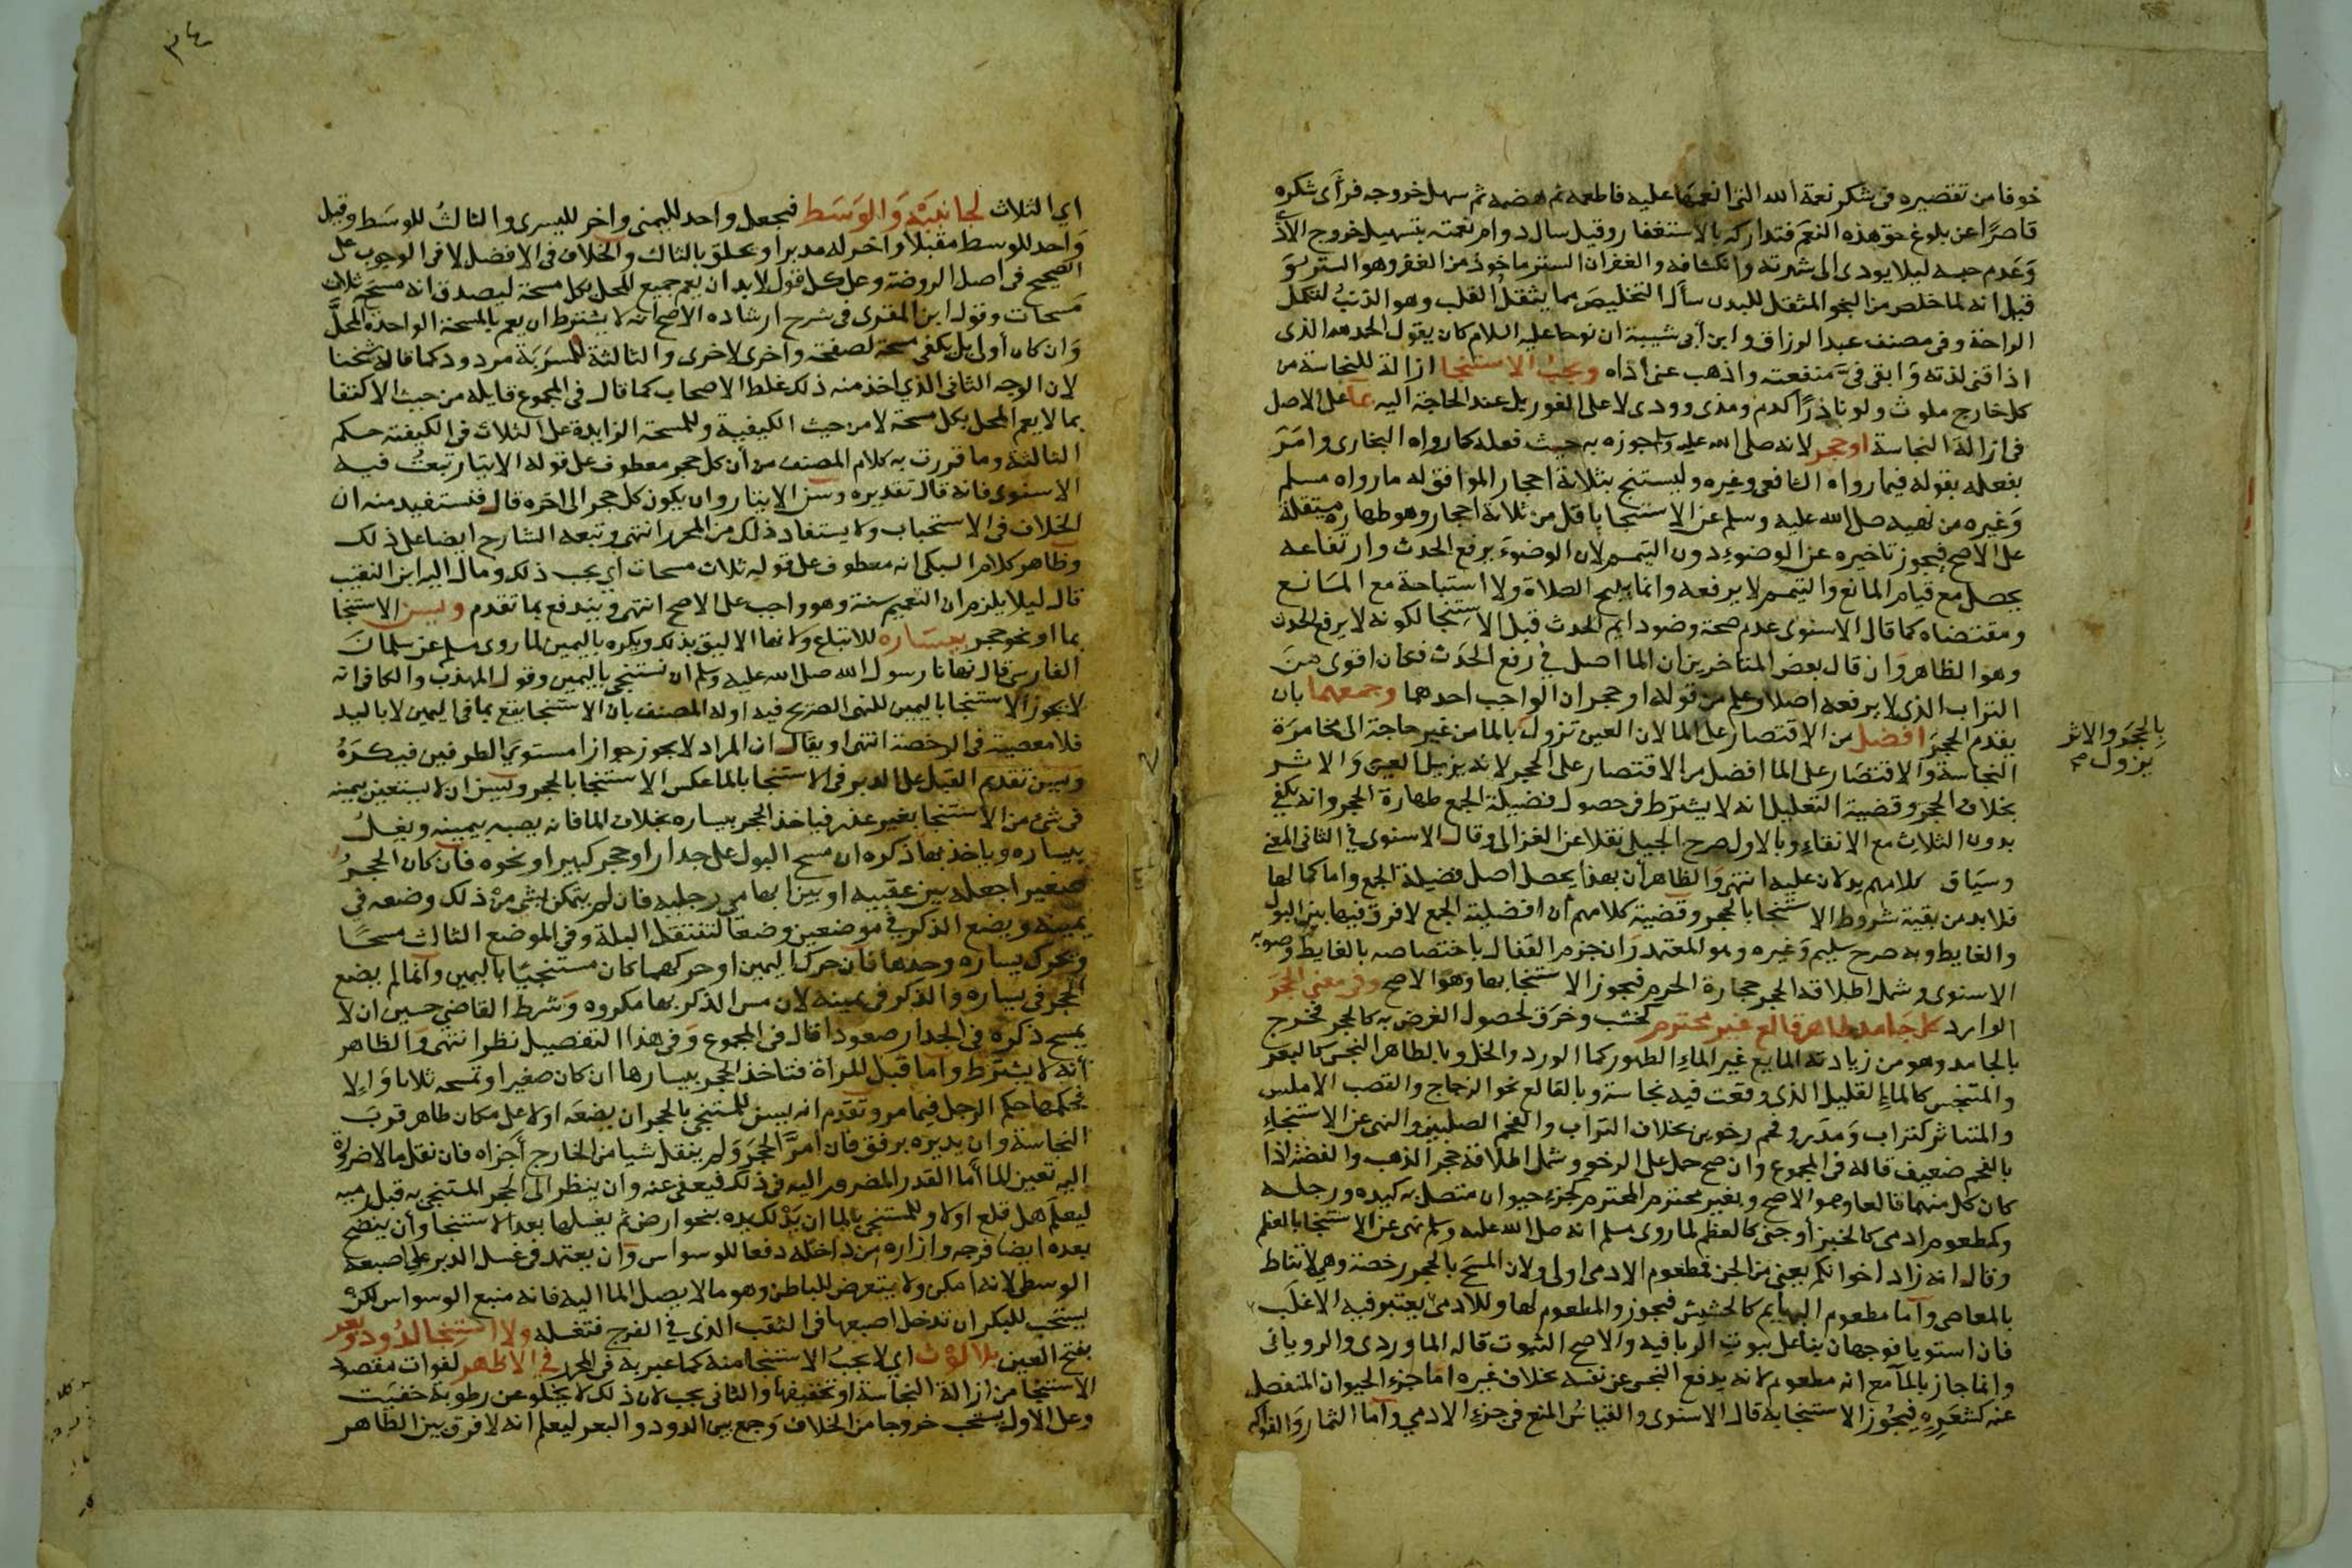 خوفا من تقصيره فى شكر نعمة الله التى انعمها عليه فاطعمه ثم هضمه ثم سهل خروجه فرأى شكره
قاصرًا عن بلوغ حق هذه النعم فتداركه بالاستغفار وقيل سال دوام نعمته بتسهيل خروج الاذى
وَعَدم حبسه ليلا يودى الى شهرته وانكشافه والغفران الستر ماخوذ من الغفر وهو الستر
قيل انه لما خلص من النجو المثقل للبدن سأل التخليص مما يثقل القلب وهو الذنب لتكمل
الراحة وفى مصنف عبد الرزاق وابن أبى شيبة ان نوحا عليه السلام كان يقول الحمد لله الذى
اذاقنى لذته وَابقى فىَّ منفعته واذهب عنى اذاه ويجب الاستنجا ازالة للنجاسة من
كل خارج ملوث ولو نادرًا كدم ومذى وودى لا على الفور بل عند الحاجة اليه بما على الاصل
فى ازالة النجاسة او حجر لانه صلى الله عليه وسلم جوزه به حيث فعله كما رواه البخارى وامَرَ
بفعله بقوله فيما رواه الشافعى وغيره وليستنج بثلاثة احجار الموافق له ما رواه مسلم
وَغيره من نهيه صلى الله عليه وسلم عن الاستنجا باقل من ثلاثة احجار وهو طهارة مستقلة
على الاصح فيجوز تاخيره عن الوضوء دون التيمم لان الوضوءَ يرفع الحدث وارتفاعه
يحصل مع قيام المانع والتيمم لا يرفعه وانما يبيح الصلاة ولا استباحة مع المَانع
ومقتضاه كما قال الاسنوى عدم صحة وضو دايم الحدث قبل الاستنجا لكونه لا يرفع الحدث
وهو الظاهر وَان قال بعض المتاخرين ان الما اصل في رفع الحدَث فكان اقوى من
التراب الذى لا يرفعه اصلا وعلم من قوله او حجر ان الواجب احدهما وجمعهما بان
يقدم الحجرَ افضل من الاقتصار على الما لان العين تزول بالما من غير حاجة الى مخامرَة
بالحجَر والاثر
يزول صح
النجاسة وَالاقتصَار على الما افضل من الاقتصار على الحجر لانه يزيل العين وَالاثر
بخلاف الحجر وقضية التعليل انه لا يشترط فى حصول فضيلة الجمع طهارة الحجر وانه يكفي
بدون الثلاث مع الانقاء وبالاول صرح الجيلى نقلا عن الغزالى وقال الاسنوى في الثانى المعنى
وسيَاق كلامهم يدلان عليه انتهى وَالظاهر أن بهذا يحصل اصل فضيلة الجمع واما كمالها
فلابد من بقية شروط الاستنجا بالحجر وقضية كلامهم أن افضلية الجمع لا فرق فيها بين البول
والغايط وبه صرح سليم وَغيره وهو المعتمد وَان جزم القفال باختصاصه بالغايط وصوبه
الاسنوى وشمل اطلاقه الحجر حجارة الحرم فيجوز الاستنجا بها وهو الاصح وفى معنى الحجَر
الوارد كل جَامد طاهر قالع غير محترم كخشب وخرَق لحصول الغرض به كالحجر فخرج
بالجامد وهو من زيادته المايع غير الماءِ الطهور كما الورد والخل وبالطاهر النجس كالبعر
والمتنجس كالماءِ القليل الذى وقعت فيه نجاسة وبالقالع نحو الزجاج والقصب الاملس
والمتناثر كتراب وَمدَر وفحم رخوين بخلاف التراب والفحم الصلبين والنهى عن الاستنجاءِ
بالفحم ضعيف قاله فى المجموع وان صح حمل على الرخو وشمل اطلاقه حجر الذهب والفضة اذا
كان كل منهما قالعا وهو الاصح وبغير محترم المحترم كجزء حيوان متصل به كيده ورجله
وكمطعوم ادمى كالخبز أو جنى كالعظم لما روى مسلم انه صلى الله عليه وسلم نهى عن الاستنجا بالعظم
وقال انه زاد اخوانكم يعنى من الجن فمطعوم الادمى اولى ولان المسح بالحجر رخصة وهى لا تناط
بالمعاصى وأما مطعوم البهايم كالحشيش فيجوز والمطعوم لها وللادمى يعتبر فيه الاغلب
فان استويا فوجهان بناء على ثبوت الربا فيه والاصح الثبوت قاله الماوردى والرويانى
وانما جاز بالمآ مع انه مطعوم لانه يدفع النجس عن نفسه بخلاف غيره امَا جزء الحيوان المنفصل
عنه كشعره فيجُوز الاستنجا به قال الاسنوى والقياسُ المنع فى جزء الادمي وأما الثمار وَالفواكه
٣٤
اى الثلاث لجانبَيْه وَالوَسَط فيجعل واحد لليمنى واخر لليسرى والثالثُ للوسَط وقيل
وَاحد للوسط مقبلا واخر له مدبرا ويحلق بالثالث والخلاف فى الافضل لا فى الوجوب على
الصحيح فى اصل الروضة وعلى كل قول لابد ان يعم جميع المحل بكل مسحة ليصدق انه مسَحَه ثلاث
مَسَحات وقول ابن المقرى فى شرح ارشاده الاصح انه لا يشترط ان يعم بالمسحة الواحدة المحلَّ
وَان كان أولى بل يكفى مسحة لصفحة واخرى لاخرى والثالثة للمسرَبَة مردود كما قاله شيخنا
لان الوجه الثانى الذي اخذ منه ذلك غلط الاصحاب كما قال فى المجموع قايله من حيث الاكتفا
بما لا يعم المحل بكل مسحة لا من حيث الكيفية وللمسحة الزايدة على الثلاث فى الكيفية حكم
الثالثة وما قررت به كلام المصنف من أن كل حجر معطوف على قوله الايتار تبعتُ فيه
الاسنوى فانه قال تقديره وسن الايتار وان يكون كل حجر الى اخره قال فنستفيد منه ان
الخلاف فى الاستحباب ولا يستفاد ذلك من المحرر انتهى وتبعه الشارح ايضا على ذلك
وظاهر كلام السبكى انه معطوف على قوله ثلاث مسحات اي يجب ذلك ومال اليه ابن النقيب
قال ليلا يلزم ان التعميم سنة وهو واجب على الاصح انتهى ويندفع بما تقدم ويسن الاستنجا
بما او نحو حجر بيسَاره للاتباع وَلانها الاليق بذلك ويكره باليمين لما روى مسلم عن سلمانَ
الفارسى قال نهانا رسول الله صلى الله عليه وسلم ان نستنجى باليمين وقول المهذب والكافى انه
لا يجوز الاستنجا باليمين للنهى الصريح فيه اوله المصنف بان الاستنجا يقع بما فى اليمين لا باليد
فلا معصية فى الرخصة انتهى او يقال ان المراد لا يجوز جوازا مستوي الطرفين فيكرَهُ
ويسن تقديم القبل على الدبر فى الاستنجا بالما عكس الاستنجا بالحجر ويسن ان لا يستعين بيمينه
فى شىء من الاستنجا بغير عذر فياخذ الحجر بيساره بخلاف الما فانه يصبه بيمينه ويغسلُ
بيساره وياخذ بها ذكره ان مسح البول على جدار او حجر كبير او نحوه فان كان الحجرُ
صغيرا جعله بين عقبيه او بين ابهامى رجليه فان لم يتمكن بشى من ذلك وضعه فى
يمينه ويضع الذكر في موضعين وضعا لتنتقل البلة وفى الموضع الثالث مسحًا
ويحرك يساره وحدها فان حرك اليمين او حركهما كان مستنجيًا باليمين وانما لم يضع
الحجر فى يساره والذكر فى يمينه لان مس الذكر بها مكروه وَشرط القاضى حسين ان لا
يمسح ذكره فى الجدار صعودا قال فى المجموع وَفى هذا التفصيل نظر انتهى وَالظاهر
أنه لا يشترط وأما قبل المرأة فتاخذ الحجر بيسارها ان كان صغيرا وتمسحه ثلاثا وَإلا
فحكمها حكم الرجل فيما مر وتقدم انه يسن للمستنجي بالحجر ان يضعَه اولا على مكان طاهر قربَ
النجاسة وان يديره برفق فان امرَّ الحجَر وَلم ينقل شيا من الخارج أجزاه فان نقل ما لا ضرورة
اليه تعين الما أما القدر المضرور اليه فى ذلك فيعفى عنه وان ينظر الى الحجر المستنجى به قبل رميه
ليعلم هل قلع اولا وللمستنجى بالما ان يَدْلك يده بنحو ارض ثم يغسلها بعد الاستنجا وأن ينضح
بعده ايضا فرجه وازاره من داخله دفعا للوسواس وَان يعتمد فى غسل الدبر على اصبعه
الوسطى لانه امكن ولا يتعرض للباطن وهو ما لا يصل الما اليه فانه منبع الوسواس لكن
يستحب للبكر ان تدخل اصبعها فى الثقب الذى في الفرج فتغسله ولا استنجا لدُود وبعر
بفتح العين بلا لوث اي لا يجبُ الاستنجا منه كما عبر به فى المحرر في الاظهر لفوات مقصود
الاستنجا من ازالة النجاسة او تخفيفها والثانى يجب لان ذلك لا يخلو عن رطوبة خفيت
وعلى الاول يستحب خروجا من الخلاف وَجمع بين الدود والبعر ليعلم انه لا فرق بين الظاهر